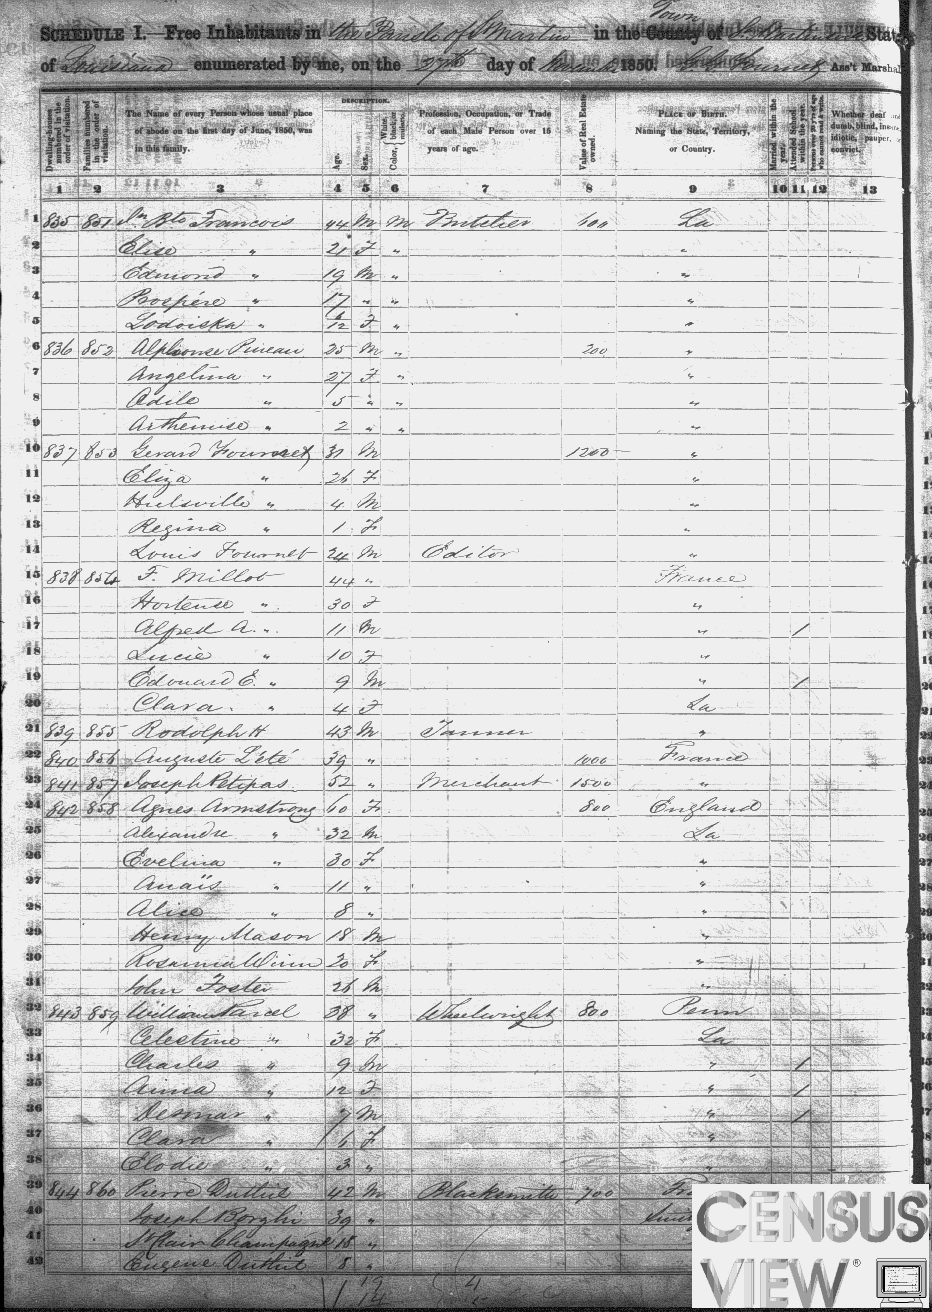 Town
SCHEDULE I. Free Inhabitants in the Parish of St Martin in the County of State
of Louisiana enumerated by me, on the 27th day of 1850. Fournet Ass't Marshal
DESCRIPTION.
Dwelling-houses numbered in the order of visitation. Families numbered in the order of visitation. The Name of every Person whose usual place of abode on the first day of June, 1850, was in this family. Age. Sex. Color, White, black, or mulatto. Profession, Occupation, or Trade of each Male Person over 15 years of age. Value of Real Estate owned. PLACE OF BIRTH. Naming the State, Territory, or Country. Married within the year. Attended School within the year. Persons over 20 y'rs of age who cannot read & write. Whether deaf and dumb, blind, insane, idiotic, pauper, or convict.
1 2 3 4 5 6 7 8 9 10 11 12 13
1 835 851 Jn Bte Francois 44 M M Butcher 600 La
2 Elise " 21 F " "
3 Edmond " 19 M " "
4 Prospére " 17 " " "
5 Lodoiska " 12 F " "
6 836 852 Alphonse Pineau 25 M " 200 "
7 Angelina " 27 F " "
8 Odile " 5 " " "
9 Arthemise " 2 " " "
10 837 853 Gerard Fournet 31 M 1200 "
11 Eliza " 26 F "
12 Hulsville " 4 M "
13 Regina " 1 F "
14 Louis Fournet 24 M Editor "
15 838 854 F. Millot 44 " France
16 Hortense " 30 F "
17 Alfred A. " 11 M " 1
18 Lucie " 10 F "
19 Edouard E. " 9 M " 1
20 Clara " 4 F La
21 839 855 Rodolph H 43 M Tanner "
22 840 856 Auguste L'été 39 " 1000 France
23 841 857 Joseph Petipas 52 " Merchant 1500 "
24 842 858 Agnes Armstrong 60 F 800 England
25 Alexandre " 32 M La
26 Evelina " 30 F "
27 Anaïs " 11 " "
28 Alice " 8 " "
29 Henry Mason 18 M "
30 Rosanna Winn 20 F "
31 John Foster 26 M "
32 843 859 William Parcel 38 " Wheelwright 800 Penn
33 Celestine " 32 F La
34 Charles " 9 M " 1
35 Anna " 12 F " 1
36 Desmar " 7 M " 1
37 Clara " 6 F "
38 Elodie " 3 " "
39 844 860 Pierre Duthil 42 M Blacksmith 700
40 Joseph Borghi 39 "
41 St Clair Champagne 18 "
42 Eugene Duthil 8 "
CENSUS
VIEW®